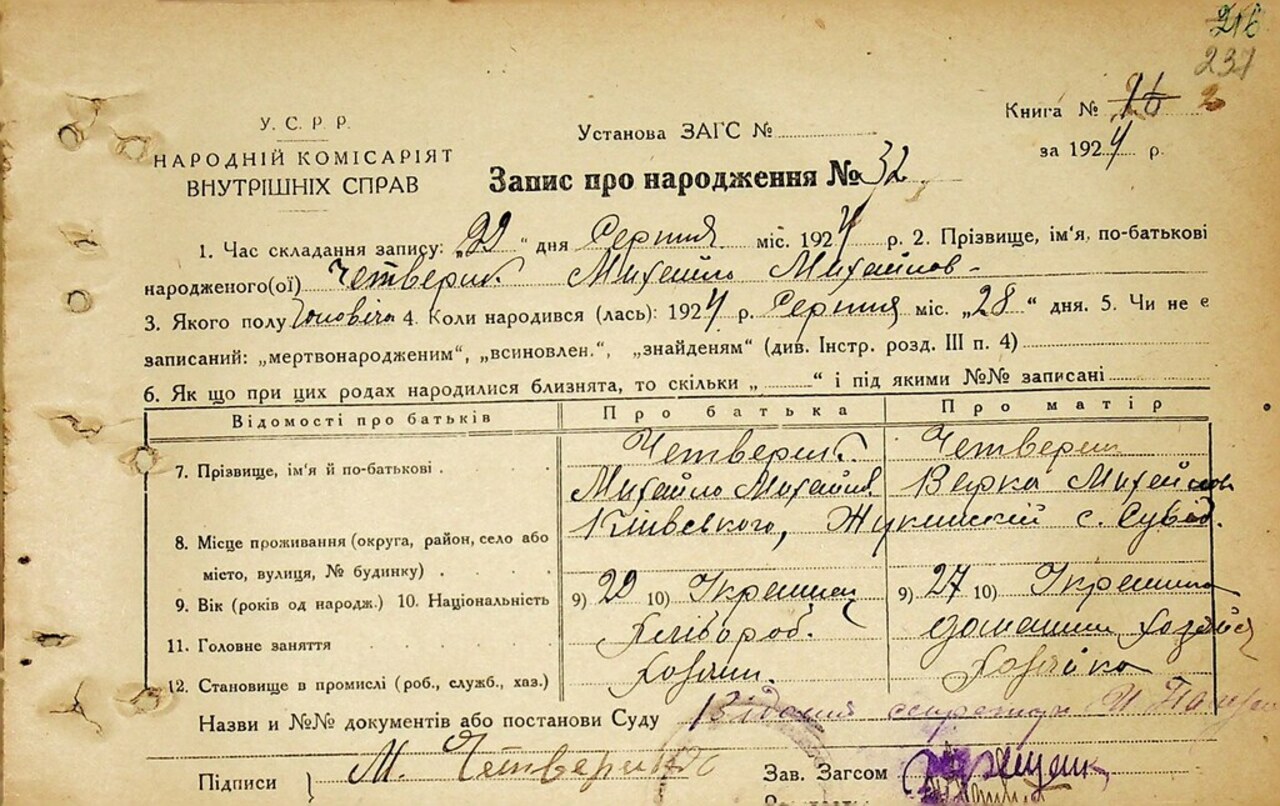 216
237
Книга № 16 2
У. С. Р. Р.
Установа ЗАГС №
за 1924 р.
НАРОДНІЙ КОМІСАРІЯТ
ВНУТРІШНІХ СПРАВ
Запис про народження № 32
1. Час складання запису: „22“ дня Серпня міс. 1924 р. 2. Прізвище, ім'я, по-батькові
народженого(ої) Четверик Михайло Михайлов-
3. Якого полу Чоловіча 4. Коли народився (лась): 1924 р. Серпня міс. „28“ дня. 5. Чи не є
записаний: „мертвонародженим“, „всиновлен.“, „знайденям“ (див. Інстр. розд. III п. 4)
6. Як що при цих родах народилися близнята, то скільки „ “ і під якими №№ записані
Відомості про батьків Про батька Про матір
7. Прізвище, ім'я й по-батькові Четверик Четверик
Михайло Михайлів Михайлов
Київського, с. Сувид.
8. Місце проживання (округа, район, село або
місто, вулиця, № будинку)
9. Вік (років од народж.) 10. Національність 9) 10) Украинец 9) 27 10) Украинка
11. Головне заняття Хлібороб. домашня
12. Становище в промислі (роб., служб., хаз.) Хозяин. Хозяйка
Назви и №№ документів або постанови Суду
Підписи } М. Четверик Зав. Загсом